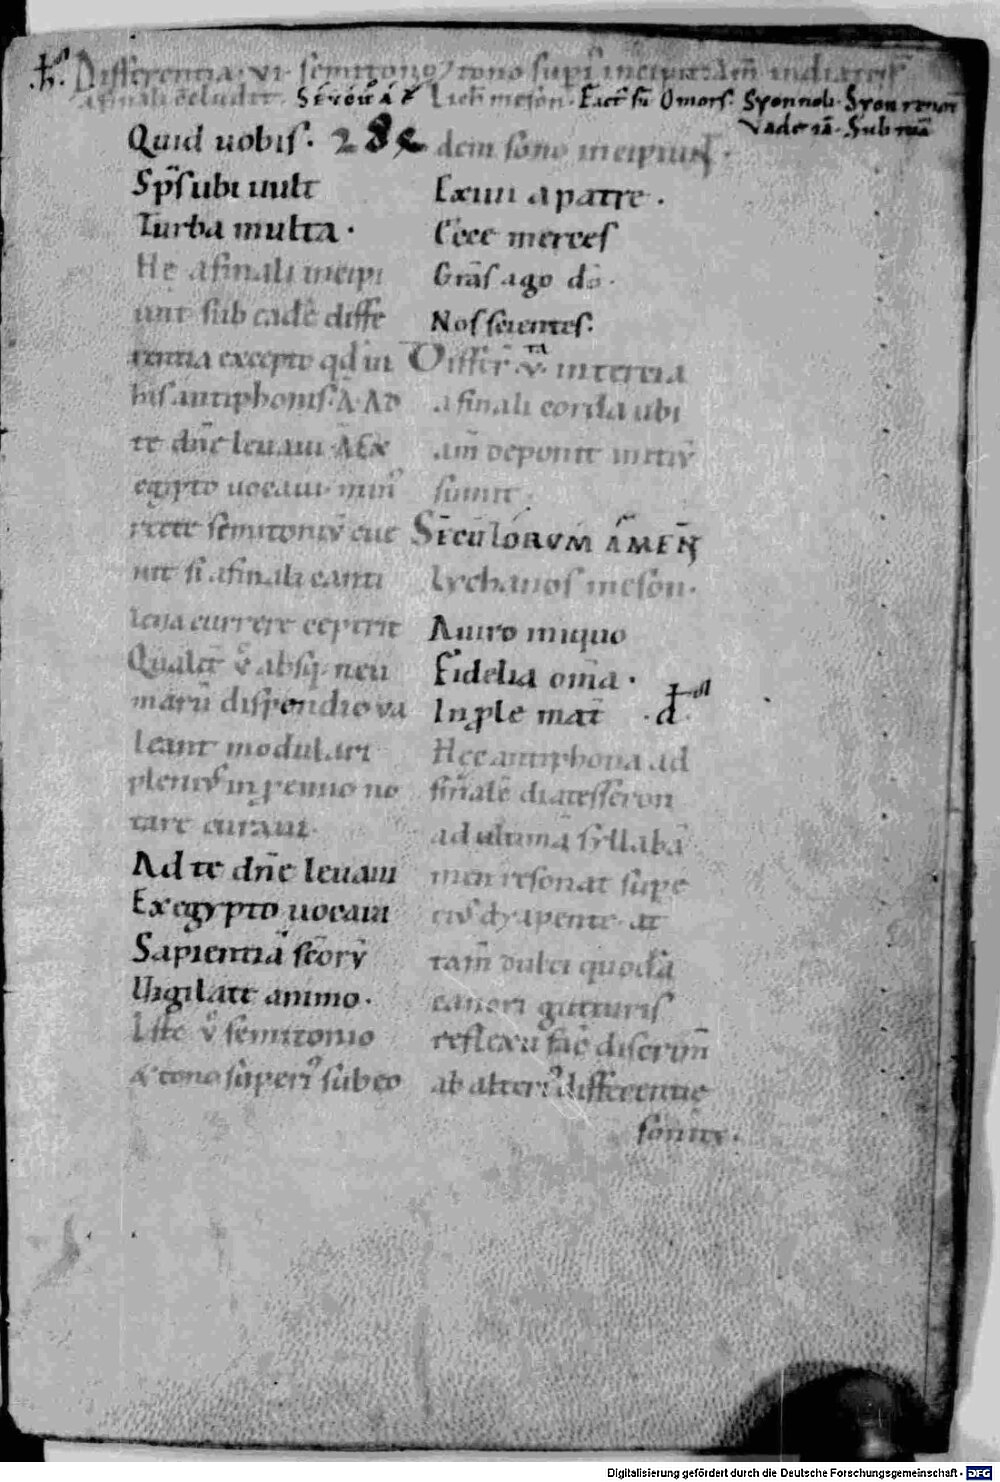 Differentia. vi. semitonio & tono supi⁹ incipit. Am̄ in diatess̄
a finali c̄cludit. Lich̄ meson. Fact̄ ſū O mors. Syon noli. Syon renou
Vade iā. Sub tuā
Quid uobiſ.
Sp̄ſ ubi uult
Turba multa.
Hę a finali incipi
unt sub eadē diffe
rentia excepto qd̄ in
hiſ antiphoniſ. Ā. AD
te dn̄e leuaui. Ā EX
egypto uocaui. min⁹
recte semitoniū eue
nit si a finali canti
lena currere ceperit
Qualit̄ v̄ absq; neu
marū dispendio va
leant modulari
pleniuſ in ꝓemio no
tare curaui.
Ad te dn̄e leuaui
Ex egypto uocaui
Sapientiā sc̄orū
Uigilate animo.
Iste v̄ semitonio
& tono superi⁹ sub eo
dem sono incipiunt.
Exiui a patre.
Ecce merces
Grāſ ago dō.
Nos scientes.
Differ̄ v̄ta in tercia
a finali corda ubi
am̄ deponit initiū
sumit.
SĒCŪLORVM ĀMEN
Lychanos meson.
A uiro iniquo
Fidelia om̄a.
Inple mat̄ .d.
Hęc antiphona ad
finalē diatesseron
ad ultimā syllabā
men resonat supe
riuſ dyapente. at
tam̄ dulci quodā
canori gutturis
reflexu fac̄ discrim̄
ab alteri⁹ differentie
sonitu.